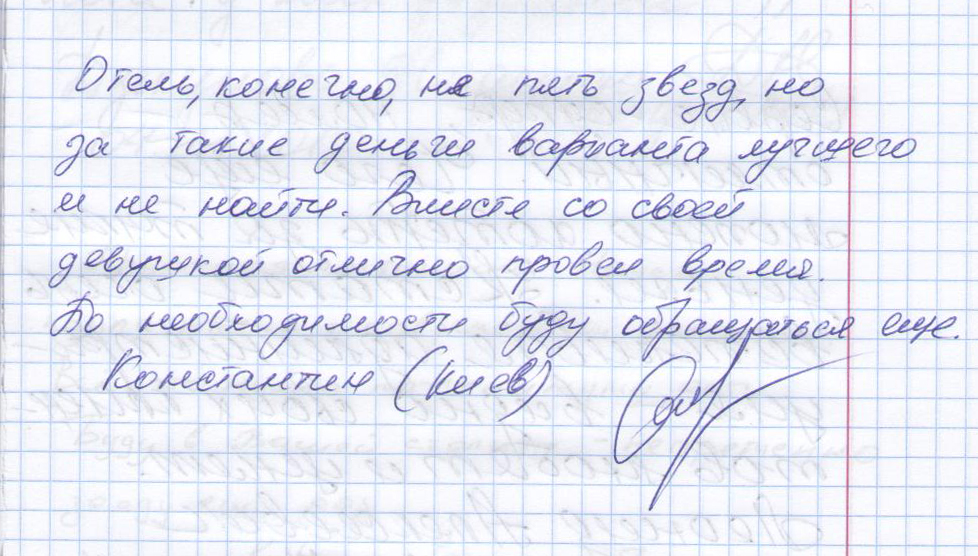 Отель, конечно, не пять звезд, но
за такие деньги варианта лучшего
и не найти. Вместе со своей
девушкой отлично провел время.
По необходимости буду обращаться еще.
Константин (Киев)